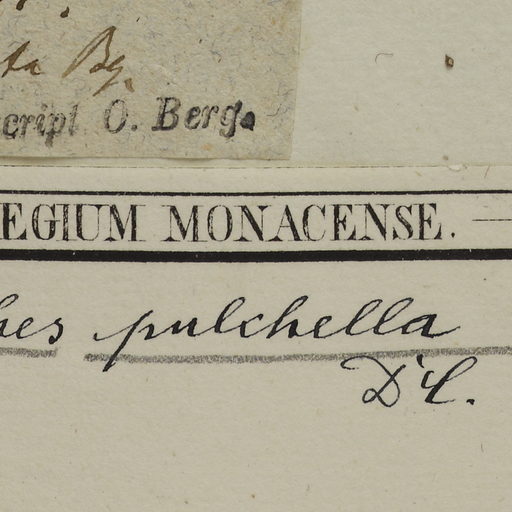 ta Bg.
cript O. Berg.
EGIUM MONACENSE.
hes pulchella
DC.